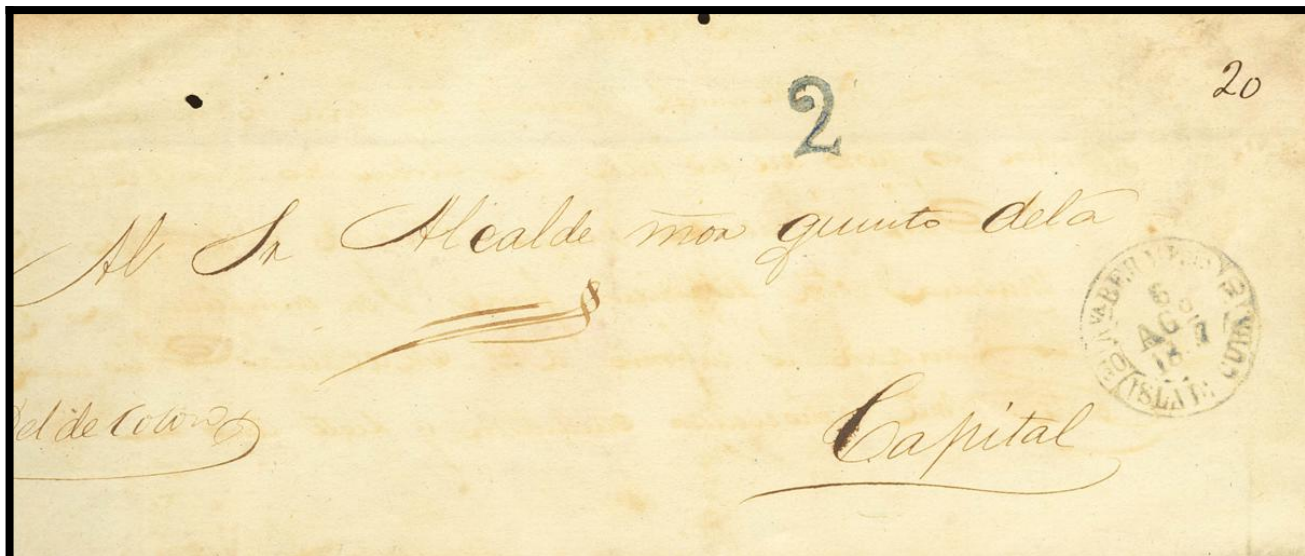 20
2
Al Sr Alcalde mor quinto dela
6
AGo
ISLA CUBA
Del de Colon
Capital